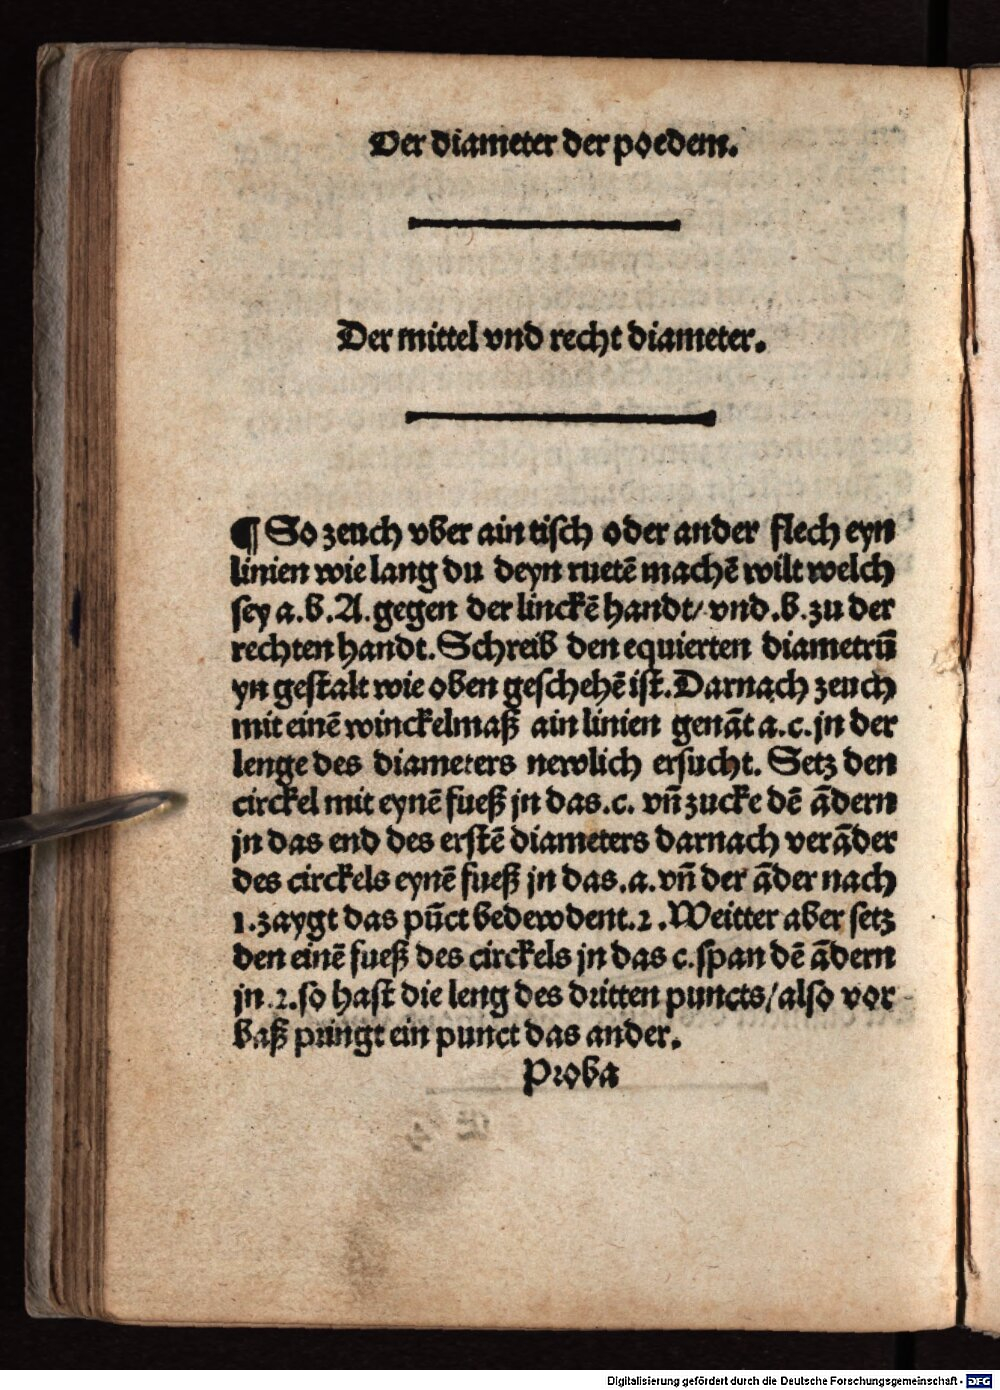 Der diameter der poedem.
Der mittel vnd recht diameter.
¶ So zeuch vber ain tisch oder ander flech eyn
linien wie lang du deyn ruetē machē wilt welch
sey a.b.A.gegen der linckē handt/vnd.b.zu der
rechten handt.Schreib den equierten diametrū
yn gestalt wie oben geschehē ist.Darnach zeuch
mit einē winckelmaß ain linien genāt a.c.jn der
lenge des diameters newlich ersucht. Setz den
circkel mit eynē fueß jn das.c. vn̄ zucke dē ādern
jn das end des erstē diameters darnach verāder
des circkels eynē fueß jn das.a.vn̄ der āder nach
1.zaygt das pūct bedewdent.2.Weitter aber setz
den einē fueß des circkels jn das c.span dē ādern
jn.2.so hast die leng des dritten puncts/also vor
baß pringt ein punct das ander.
Proba
Digitalisierung gefördert durch die Deutsche Forschungsgemeinschaft - DFG